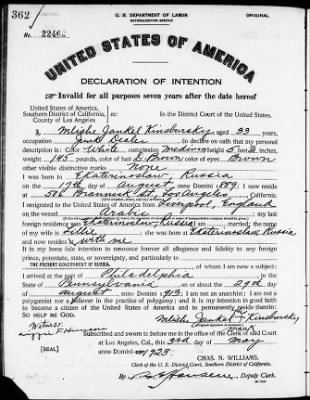 362
U. S. DEPARTMENT OF LABOR
NATURALIZATION SERVICE
ORIGINAL
No. 22460
UNITED STATES OF AMERICA
DECLARATION OF INTENTION
Invalid for all purposes seven years after the date hereof
United States of America,
Southern District of California,
County of Los Angeles
In the District Court of the United States.
I, Mishe Jankel Kinsbursky, aged 33 years,
occupation Junk Dealer, do declare on oath that my personal
description is: Color White, complexion Medium, height 5 feet 2 inches,
weight 145 pounds, color of hair D. Brown, color of eyes Brown
other visible distinctive marks None
I was born in Ekaterinoslaw, Russia
on the 17th day of August, anno Domini 1889; I now reside
at 506 Brannick St, Los Angeles, California.
I emigrated to the United States of America from Liverpool, England
on the vessel Arabic; my last
foreign residence was Ekaterinoslaw, Russia; I am married; the name
of my wife is; she was born in Ekaterinoslaw, Russia
and now resides with me
It is my bona fide intention to renounce forever all allegiance and fidelity to any foreign
prince, potentate, state, or sovereignty, and particularly to
THE PRESENT GOVERNMENT OF RUSSIA, of whom I am now a subject;
I arrived at the port of Philadelphia, in the
State of Pennsylvania, on or about the 29th day
of August, anno Domini 1913; I am not an anarchist; I am not a
polygamist nor a believer in the practice of polygamy; and it is my intention in good faith
to become a citizen of the United States of America and to permanently reside therein:
SO HELP ME GOD.
Mishe Jankel Kinsbursky
Witness:
mark
Subscribed and sworn to before me in the office of the Clerk of said Court
[SEAL]
at Los Angeles, Cal., this 3rd day of May
anno Domini 1923.
CHAS. N. WILLIAMS,
Clerk of the U. S. District Court, Southern District of California.
By Hansen, Deputy Clerk.